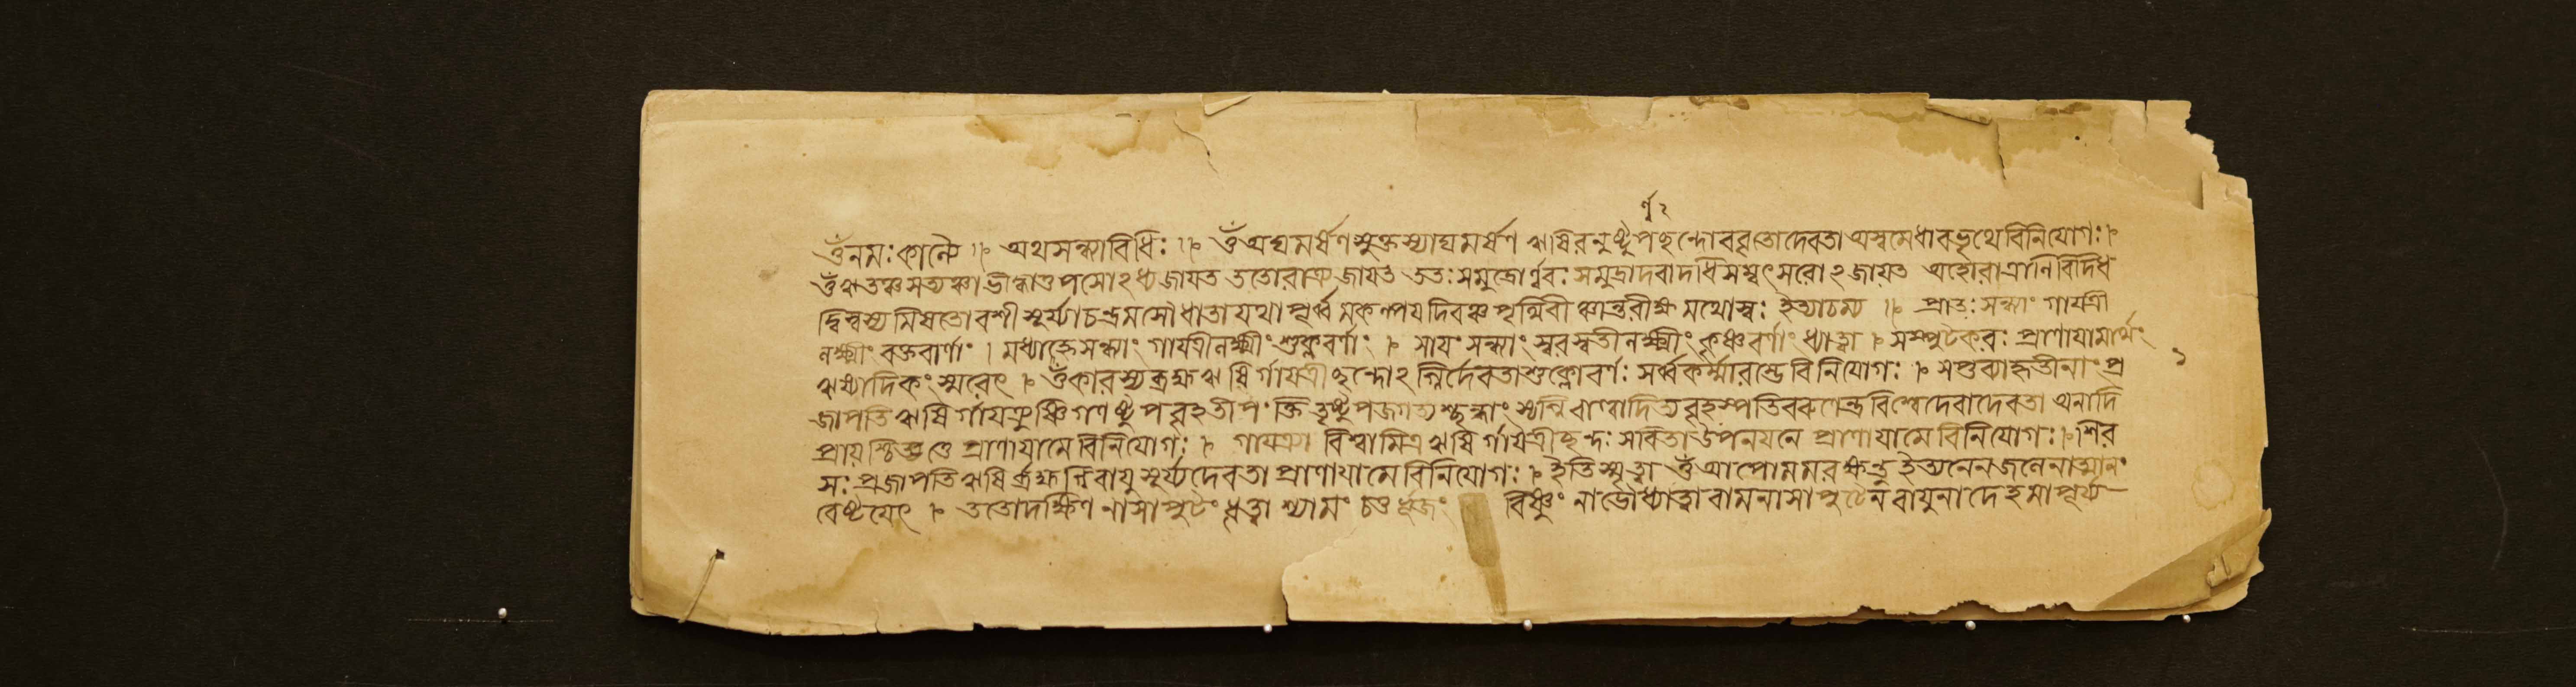 র্ণ ২
ওঁনমঃকাল্যৈ ৷৷ অথসন্ধ্যাবিধিঃ ৷৷ ওঁঅঘমর্ষণসূক্তস্যাঘমর্ষণ ঋষিরনুষ্টুপছন্দোববৃতোদেবতাঅস্বমেধাবভৃথেবিনিযোগঃ৷
ওঁঋতঞ্চসত্যঞ্চাভীদ্ধাত্তপসোঽধ্যজাযত ততোরাত্র্যজাযত ততঃসমুদ্রোর্ণ্ণবঃসমুদ্রাদর্ণবাদধিসম্বৎসরোঽজাযত অহোরাত্রানিবিদধ
দ্বিস্বস্যমিষতোবশী সূর্য্যাচন্দ্রমসৌধাতাযথাপূর্ব্বমকল্পযদিবঞ্চপৃথিবীঞ্চান্তরীক্ষমথোস্বঃ ইত্যাচম্য ৷৷ প্রাতঃসন্ধ্যাং গাযত্রী
লক্ষ্মীং রক্তবার্ণাং ৷ মধ্যাহ্নেসন্ধ্যাং গাযত্রীলক্ষ্মীং শুক্লবর্ণাং ৷ সাযংসন্ধ্যাং স্বরস্বতীলক্ষ্মীং কৃষ্ণবর্ণাং ধ্যাত্বা ৷ সম্পুটকরঃ প্রাণাযামার্থং
ঋষ্যাদিকং স্মরেৎ ৷ ওঁকারস্যব্রহ্মঋষির্গাযত্রীছন্দোঽগ্নির্দেবতাশুক্লোবর্ণঃ সর্ব্বকর্ম্মারম্ভেবিনিযোগঃ ৷ সপ্তব্যাহৃতীনাং প্র ১
জাপতিঋষির্গাযত্র্যুষ্ণিগণষ্টুপবৃহতীপংক্তিতৃষ্টুপজগত্যশ্ছন্দাং স্যগ্নিবাণ্বাদিত্যবৃহস্পতিবরুণেন্দ্রবিশ্বেদেবাদেবতা অনাদি
প্রাযশ্চিত্তে প্রাণাযামেবিনিযোগঃ ৷ গাযত্র্যা বিশ্বামিত্রঋষির্গাযত্রীছন্দঃ সবিতাউপনযনে প্রাণাযামেবিনিযোগঃ৷শির
সঃ প্রজাপতিঋষির্ব্রহ্মগ্নিবাযুসূর্য্যদেবতা প্রাণাযামেবিনিযোগঃ ৷ ইতিস্মৃত্বা ওঁআপোমমরক্ষন্তু ইত্যনেনজলেনাত্মানং
বেষ্টযেৎ ৷ ততোদক্ষিণনাসাপুটং ধৃত্বা শ্যামং চতুর্ভুজং বিষ্ণুং নাভৌধ্যাত্বাবামনাসাপুটেনবাযুনাদেহমাপূর্য্য